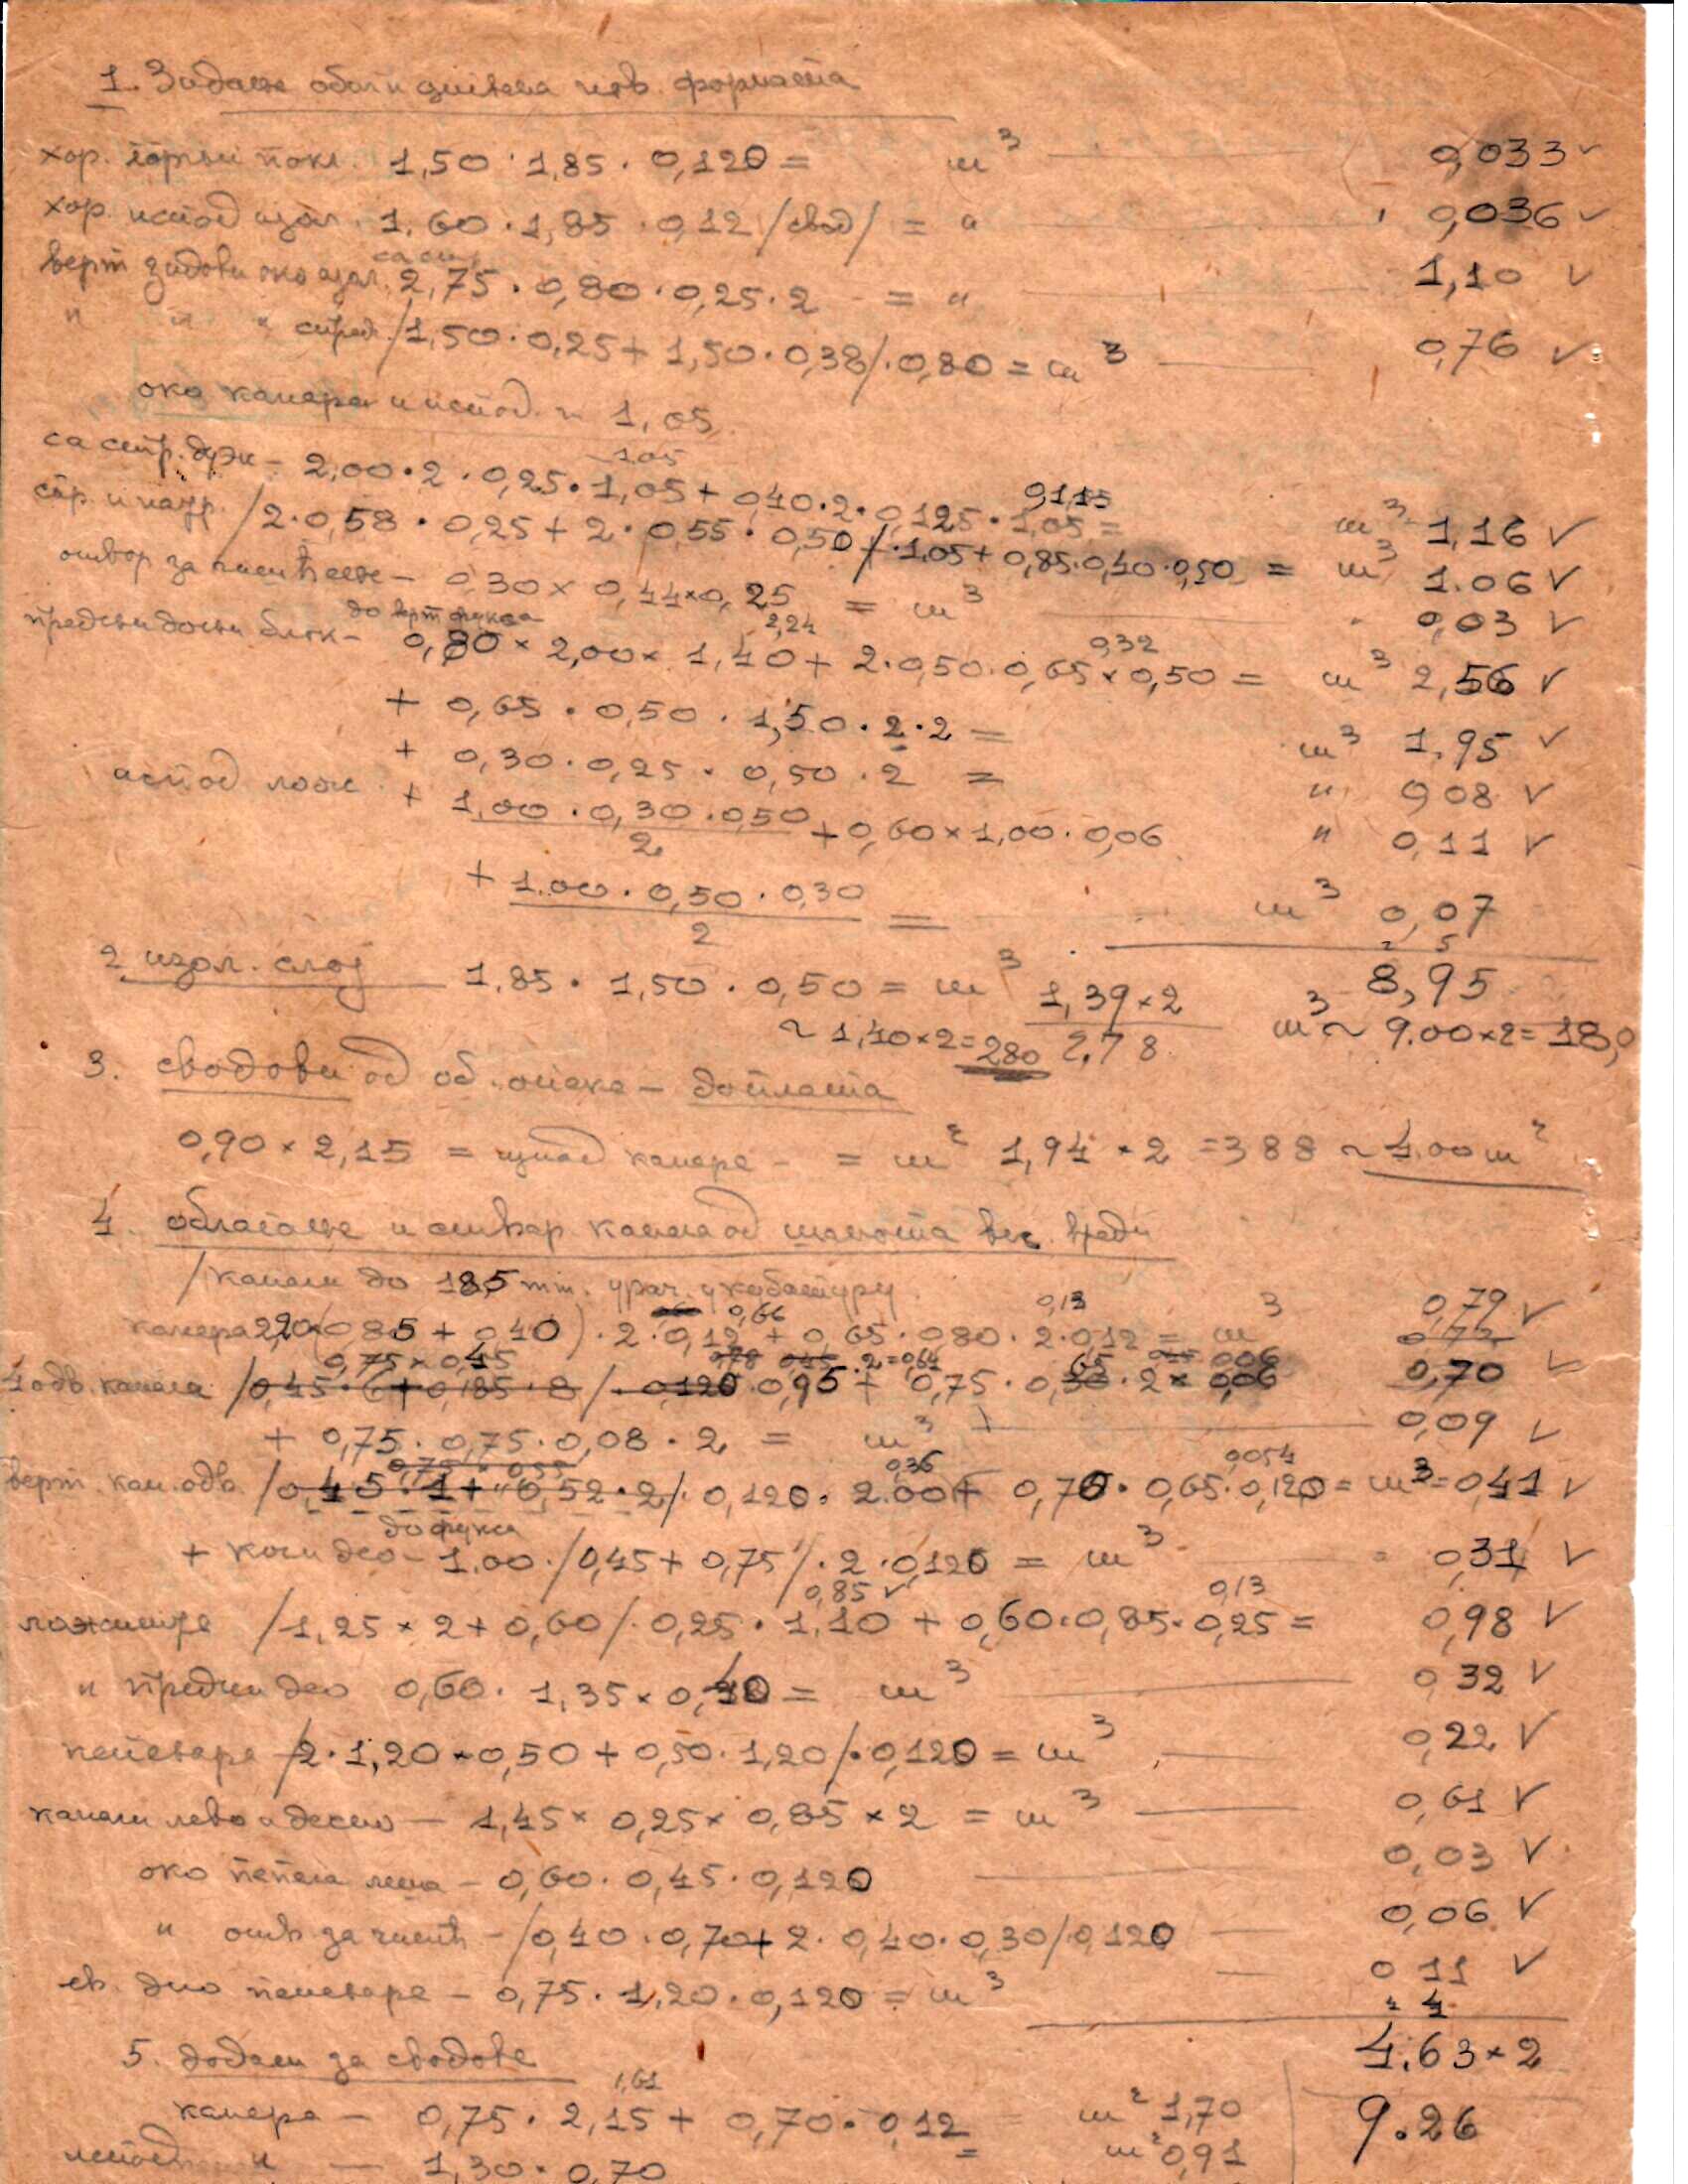 1. Зидање обичн. нов. формата
хор. горњи покл. 1,50 · 1,85 · 0,120 = m³ 0,033 ✓
хор. испод изол. 1,60 · 1,85 · 0,12 /свод/ = " 0,036 ✓
верт зидови око изол. 2,75 · 0,80 · 0,25 · 2 = " 1,10 ✓
" " " /1,50 · 0,25 + 1,50 · 0,38/ · 0,80 = m³ 0,76 ✓
око камере и испод ~ 1,05
1,05
са стр. дуж – 2,00 · 2 · 0,25 · 1,05 + 0,40 · 2 · 0,125 · 1,05 = m³ 1,16 ✓
/2 · 0,58 · 0,25 + 2 · 0,55 · 0,50/ · 1,05 + 0,85 · 0,40 · 0,50 = m³ 1.06 ✓
отвор за чишћење – 0,30 × 0,44 × 0,25 = m³ 0,03 ✓
до верт фукса 2,24 0,32
предњи доњи блок – 0,80 × 2,00 × 1,40 + 2 · 0,50 · 0,65 × 0,50 = m³ 2,56 ✓
+ 0,65 · 0,50 · 1,50 · 2 · 2 = m³ 1.95 ✓
+ 0,30 · 0,25 · 0,50 · 2 = " 0,08 ✓
испод лож. + 1,00 · 0,30 · 0,50 / 2 + 0,60 × 1,00 · 0,06 " 0,11 ✓
+ 1.00 · 0,50 · 0,30 / 2 = m³ 0,07
2 5
8,95
2 изол. слој 1,85 · 1,50 · 0,50 = m³ 1,39 × 2
~ 1,40 × 2 = 280 2,78 m³ ~ 9.00 × 2 = 18,0
3. сводови од об. опека – доплата
0,90 × 2,15 = изнад камере – = m² 1,94 × 2 = 388 ~ 4.00 m²
4. облагање и отвор канала од шамота вез. вреди
/канали до 185 mm. урач. у кубатуру
0,66 0,13
камера 2,20 (0,85 + 0,40) · 2 · 0,12 + 0,65 · 0,80 · 2 · 0,12 = m³ 0,79 ✓
0,75 × 0,45 · 2 = 0,64 65 0,06
одв. канала /0,45 · 6 + 0,185 · 8/ · 0,120 · 0,95 + 0,75 · 0,30 · 2 × 0,06 0,70 ✓
+ 0,75 · 0,75 · 0,08 · 2 = m³ 0,09 ✓
0,36 0,054
верт. кан. одв. /0,45 · 1 + 0,52 · 2/ · 0,120 · 2.00 + 0,70 · 0,65 · 0,120 = m³ = 0,41 ✓
до фукса
+ коси део – 1.00 · /0,45 + 0,75/ · 2 · 0,120 = m³ 0,31 ✓
0,85 ✓ 0,13
ложиште /1,25 × 2 + 0,60/ · 0,25 · 1,10 + 0,60 · 0,85 · 0,25 = 0,98 ✓
" предњи део 0,60 · 1,35 × 0,40 = m³ 0,32 ✓
пепељара /2 · 1,20 × 0,50 + 0,50 · 1,20/ · 0,120 = m³ 0,22 ✓
канали лево и десно – 1,45 × 0,25 × 0,85 × 2 = m³ 0,61 ✓
око пепела – 0,60 · 0,45 · 0,120 0,03 ✓
" отв за чишћ – /0,40 · 0,70 + 2 · 0,40 · 0,30/ 0,120 0,06 ✓
дно пепељаре – 0,75 · 1,20 · 0,120 = m³ 0 11 ✓
2 4
4.63 × 2
5. додати за сводове
1,61
камера – 0,75 · 2,15 + 0,70 · 0,12 = m² 1,70 9.26
испод " – 1,30 · 0,70 = m² 0,91